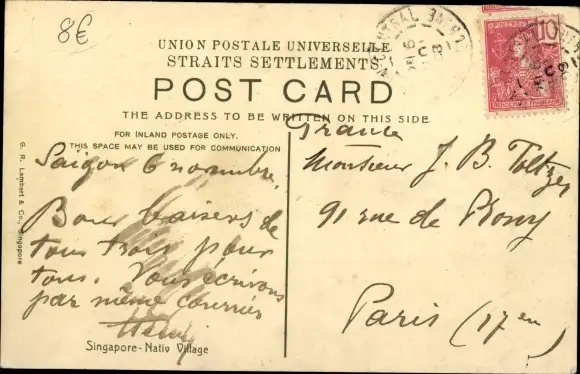 8€
UNION POSTALE UNIVERSELLE
STRAITS SETTLEMENTS
POST CARD
THE ADDRESS TO BE WRITTEN ON THIS SIDE.
FOR INLAND POSTAGE ONLY.
THIS SPACE MAY BE USED FOR COMMUNICATION
G. R. Lambert & Co., Singapore
Saigon 6 novembre.
Bons baisers de
tous trois pour
tous. Vous écrivons
par même courrier
Singapore - Nativ Village
10
France
Monsieur J. B.
91 rue de Prony
Paris (17en)